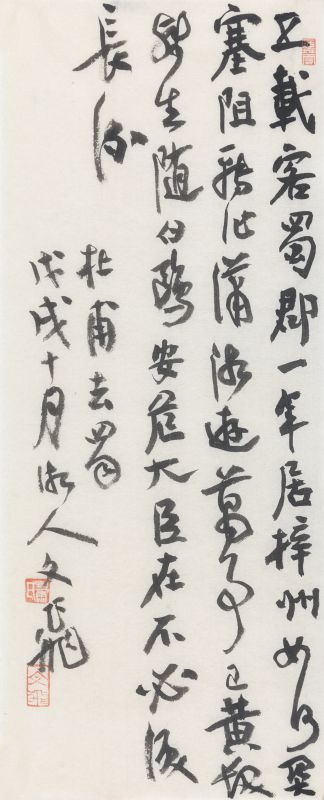 五載客蜀郡一年居梓州如何關
塞阻轉作瀟湘遊萬事已黃髮
殘生隨白鷗安危大臣在不必淚
長流
杜甫去蜀
戊戌十月湘人文